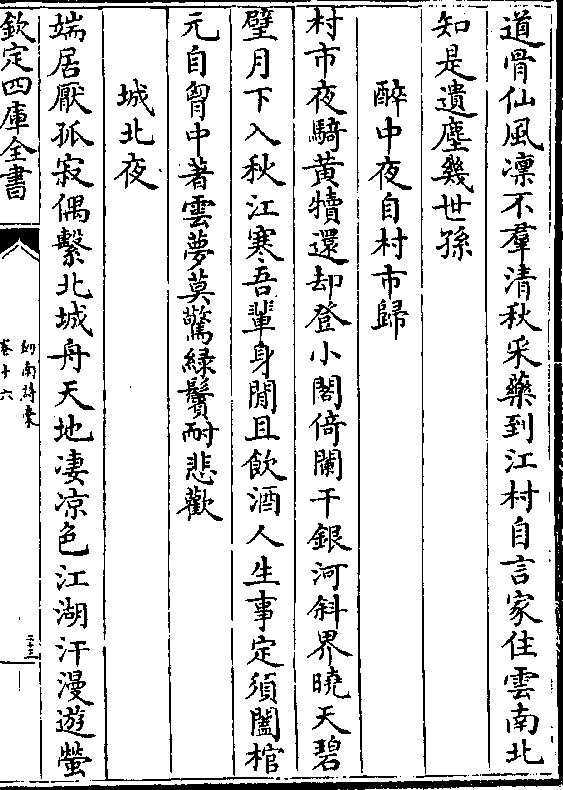 道骨仙風凜不羣清秋采藥到江村自言家住雲南北
知是遺塵幾世孫
醉中夜自村市歸
村市夜騎黃犢還却登小閣倚闌干銀河斜界曉天碧
璧月下入秋江寒吾輩身閒且飲酒人生事定須闔棺
元自胷中著雲夢莫驚綠鬢耐悲歡
城北夜
端居厭孤寂偶繫北城舟天地凄凉色江湖汗漫遊螢
欽定四庫全書
劒南詩稾
卷十六
二十三